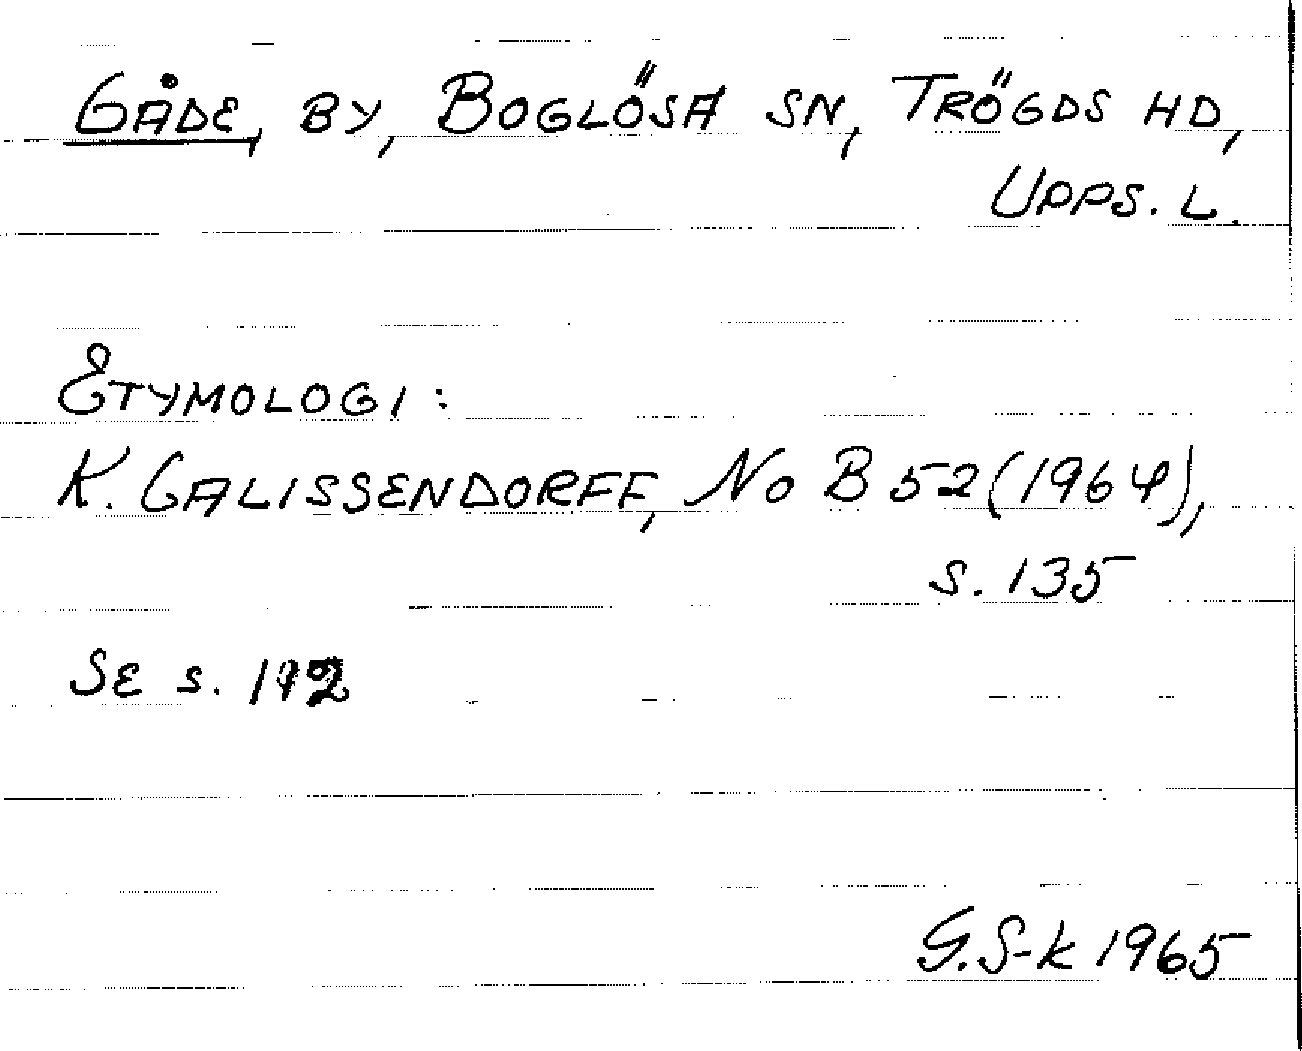 GÅDE, BY, BOGLÖSA SN, TRÖGDS HD,
UPPS. L.
ETYMOLOGI:
K. CALISSENDORFF, NoB 52 (1964),
S. 135
SE S.
G. S-k 1965